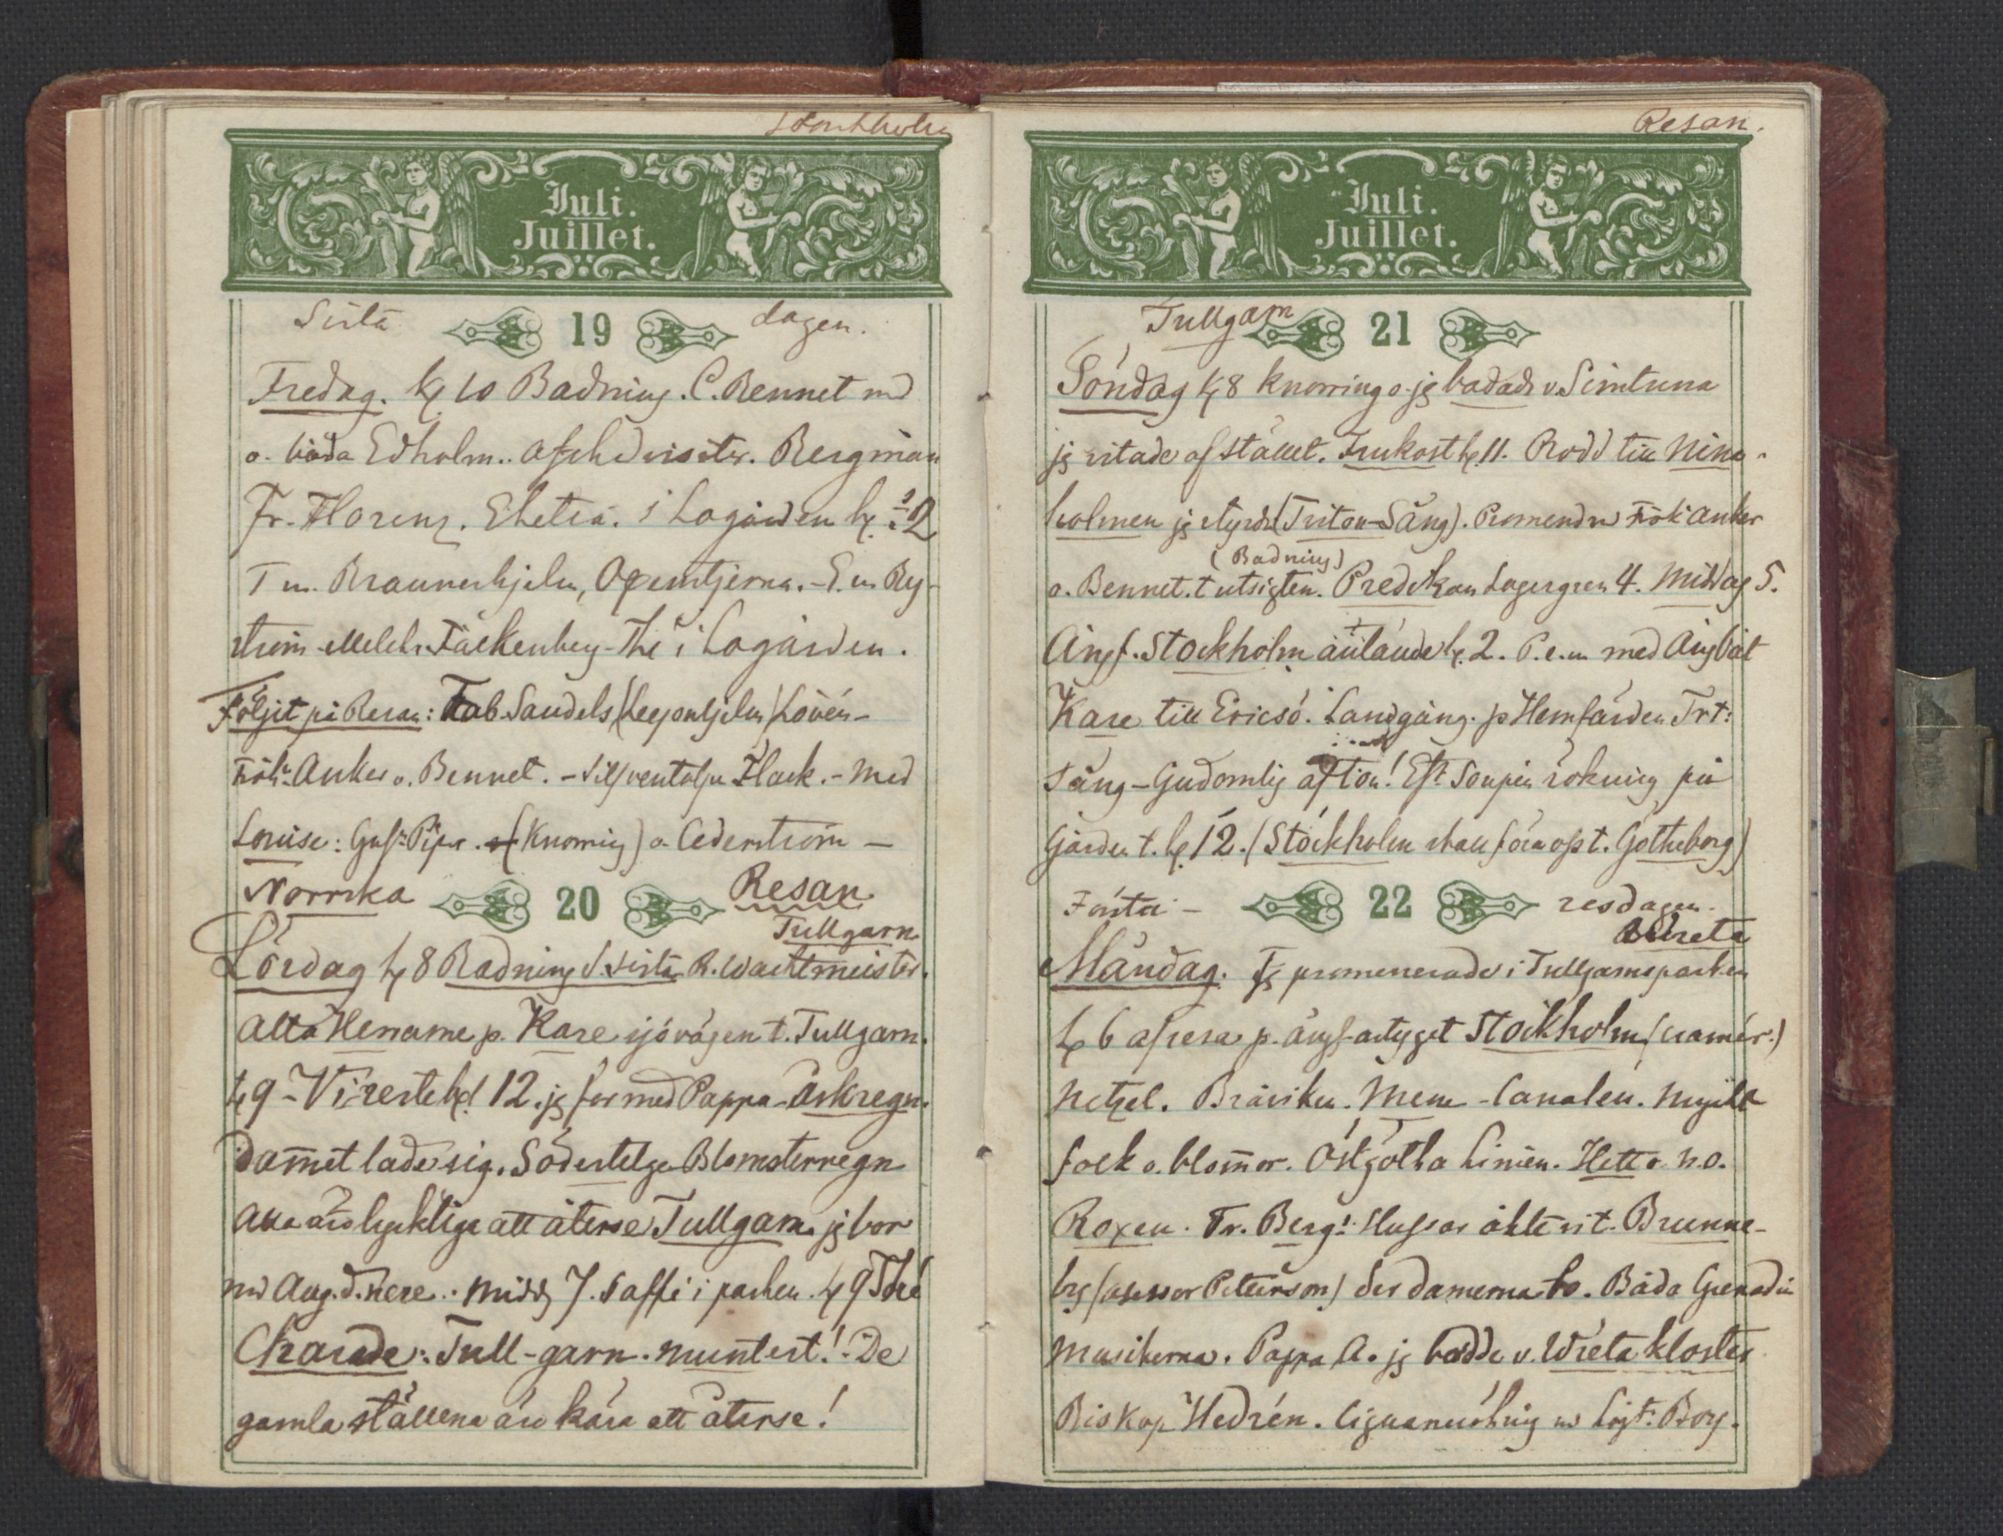 Stockholm
Juli.
Juillet.
Sista 19 dagen.
Fredag. kl 10 Badning. C. Bennet md
o. båda Edholm.. Bergman
Fr. Florenz. i Logården kl. ½2
T m. Braunerhjelm, Oxenstjerna. - E. m By-
ström - Thé i Logården.
Följit på Resan: Sandels (Leyonhjelm) Lovén -
Frök: Anker o. Bennet. - - Med
Louise: Gref: Piper. (Knorring) o. Cederström -
Norrska 20 Resan
Tullgarn
Lördag kl 8 Badning d. sista R. Wachtmeister.
Alla Herrarne p. Kare sjövägen t. Tullgarn.
kl 9 - Vi reste kl 12. jg for med Pappa - Åskregn.
Dam̅et lade sig. Södertelge Blomsterregn
Alla äro lyckliga att återse Tullgarn. jg bor
md Aug. d. nere.. Midd 7. Caffe i parken. kl 9 Thé
Charade: Tull-garn. muntert! - De
gamla ställena äro kära att återse!
Resan.
Juli.
Juillet.
Tullgarn 21
Söndag kl 8 Knorring o. jg badade v. Simtuna
jg ritade af stället. Frukost kl. 11. Rodd till Nina-
holmen jg styrde (Triton-Sång). Promend m Frök: Anker
(Badning)
o. Bennet. t utsigten. Predikan Lagergren 4. Middag 5.
Ångf. Stockholm anlände kl. 2. P. e. m med Ångbåt
Kare till Ericsö. Landgång. p Hemfärden Trt:
Sång - Gudomlig afton! Eft. Soupén rökning på
Gården t. kl 12. (Stockholm skall föra oss t. Götheborg)
Första - 22 resdagen.
Wreta
Måndag. Jg promenerade i Tullgarnsparken
kl 6 afresa p. ångfartyget Stockholm (Cramér.)
Netzel. Bråviken. Mem - Canalen. Mycket
folk o. blom̅or. Östgötha Linien. Hetta n. o.
Roxen. Fr. Berg! Hussar åkte vi t. Brunne-
by (assessor Peterson) der damerna bo. Båda Grenadier
musikerna. Pappa A. o jg bodde v. Wreta kloster
Biskop Hedrén. Cigarrrökning m Löjt: Boy.